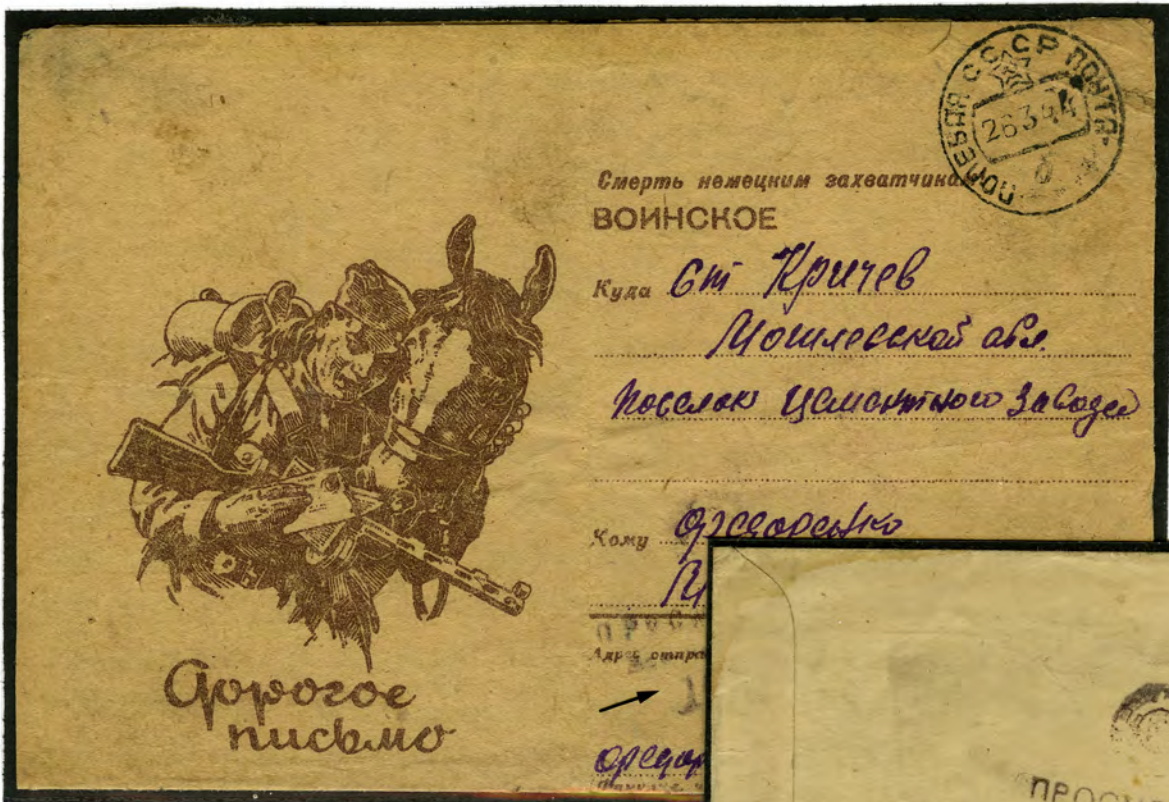 ПОЛЕВАЯ СССР ПОЧТА
26344
б
Смерть немецким захватчика
ВОИНСКОЕ
Куда Ст Кричев
Могилевской обл.
поселок Цементного Завода
Кому Федоренко
Адрес отпра
Дорогое
письмо
Федор
ПРОС